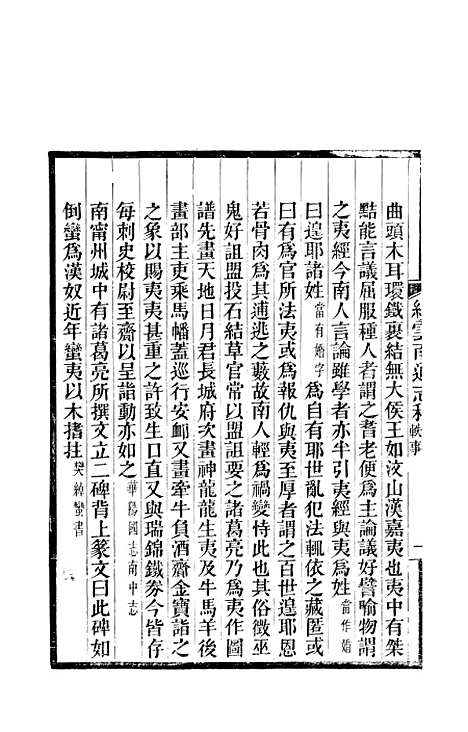 續雲南通志稿 軼事 一
曲頭木耳環鐵裹結無大侯王如汶山漢嘉夷也夷中有桀
黠能言議屈服種人者謂之耆老便爲主論議好譬喻物謂
之夷經今南人言論雖學者亦半引夷經與夷爲姓當作婚
曰遑耶諸姓當有婚字爲自有耶世亂犯法輒依之藏匿或
曰有爲官所法夷或爲報仇與夷至厚者謂之百世遑耶恩
若骨肉爲其逋逃之藪故南人輕爲禍變恃此也其俗徵巫
鬼好詛盟投石結草官常以盟詛要之諸葛亮乃爲夷作圖
譜先畫天地日月君長城府次畫神龍龍生夷及牛馬羊後
畫部主吏乘馬幡蓋巡行安卹又畫牽牛負酒齎金寶詣之
之象以賜夷夷甚重之許致生口直又與瑞錦鐵券今皆存
每刺史校尉至齎以呈詣動亦如之華陽國志南中志
南甯州城中有諸葛亮所撰文立二碑背上篆文曰此碑如
倒蠻爲漢奴近年蠻夷以木搘拄樊綽蠻書